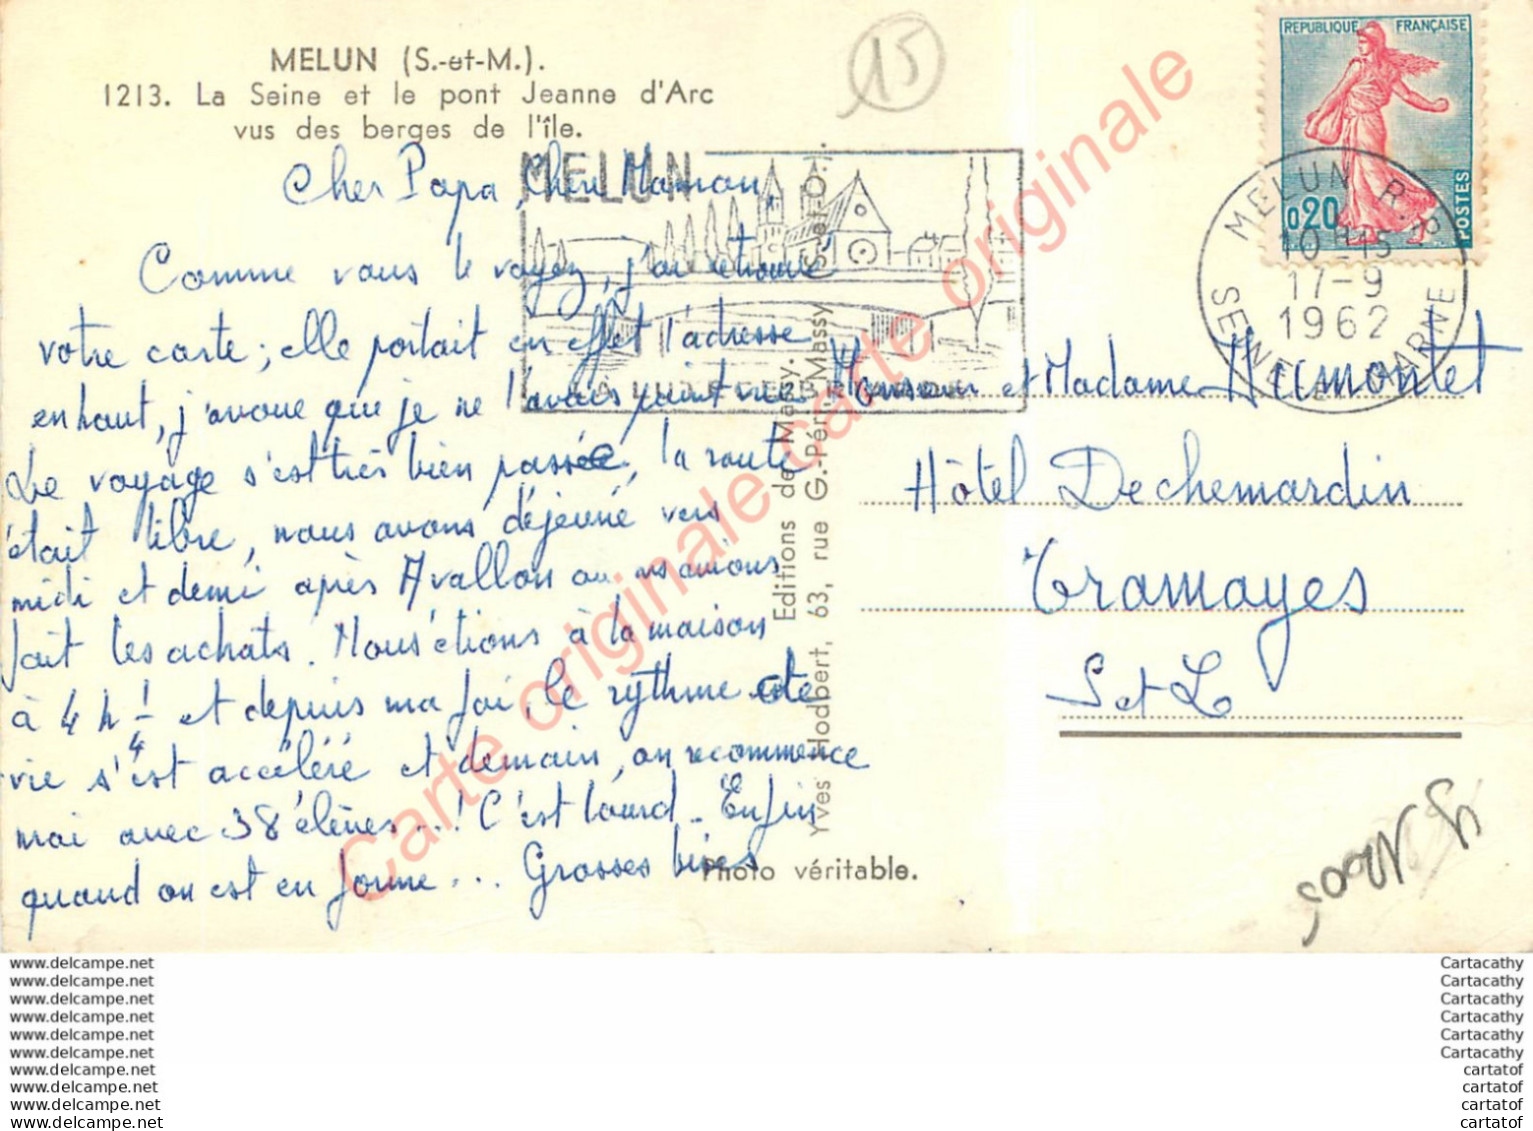 MELUN (S.-et-M.).
1213. La Seine et le pont Jeanne d'Arc
vus des berges de l'île.
15
Cher Papa, Chère Maman,
Comme vous le voyez, j'ai retrouvé
votre carte ; elle portait en effet l'adresse
en haut, j'avoue que je ne l'avais point vue
Le voyage s'est très bien passée, la route
était libre, nous avons déjeuné vers
midi et demi après Avallon où ns avions
fait les achats. Nous étions à la maison
à 4 h 1/4 et depuis ma foi, le rythme de
vie s'est accéléré et demain, on recommence
moi avec 38 élèves...! C'est lourd. Enfin
quand on est en forme... Grosses bises
MELUN
REPUBLIQUE FRANÇAISE
0,20
POSTES
MELUN R.P.
10-15
17-9
1962
SEINE ET MARNE
Monsieur et Madame Humontet
Hôtel Dechemardin
Tramayes
S et L
Editions de Massy.
Yves Hodbert, 63, rue G.-Péri Massy (S.-et-O.).
Photo véritable.
Carte originale carte originale
www.delcampe.net
www.delcampe.net
www.delcampe.net
www.delcampe.net
www.delcampe.net
www.delcampe.net
www.delcampe.net
www.delcampe.net
www.delcampe.net
www.delcampe.net
Cartacathy
Cartacathy
Cartacathy
Cartacathy
Cartacathy
Cartacathy
cartatof
cartatof
cartatof
cartatof